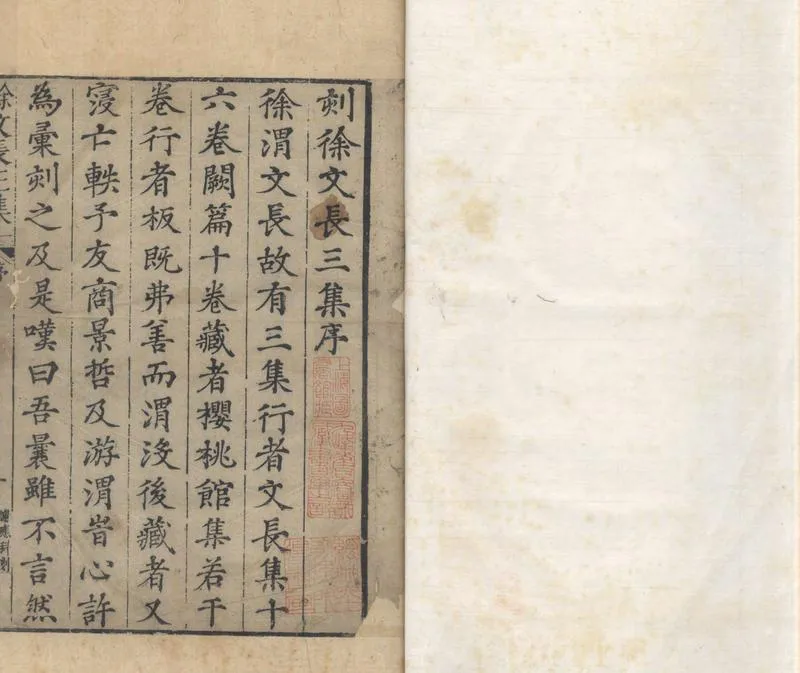 刻徐文長三集序
徐渭文長故有三集行者文長集十
六卷闕篇十卷藏者櫻桃館集若干
卷行者板既弗善而渭沒後藏者又
寖亡軼予友商景哲及游渭旹心許
為彙刻之及是嘆曰吾曩雖不言然
徐文長三集
序